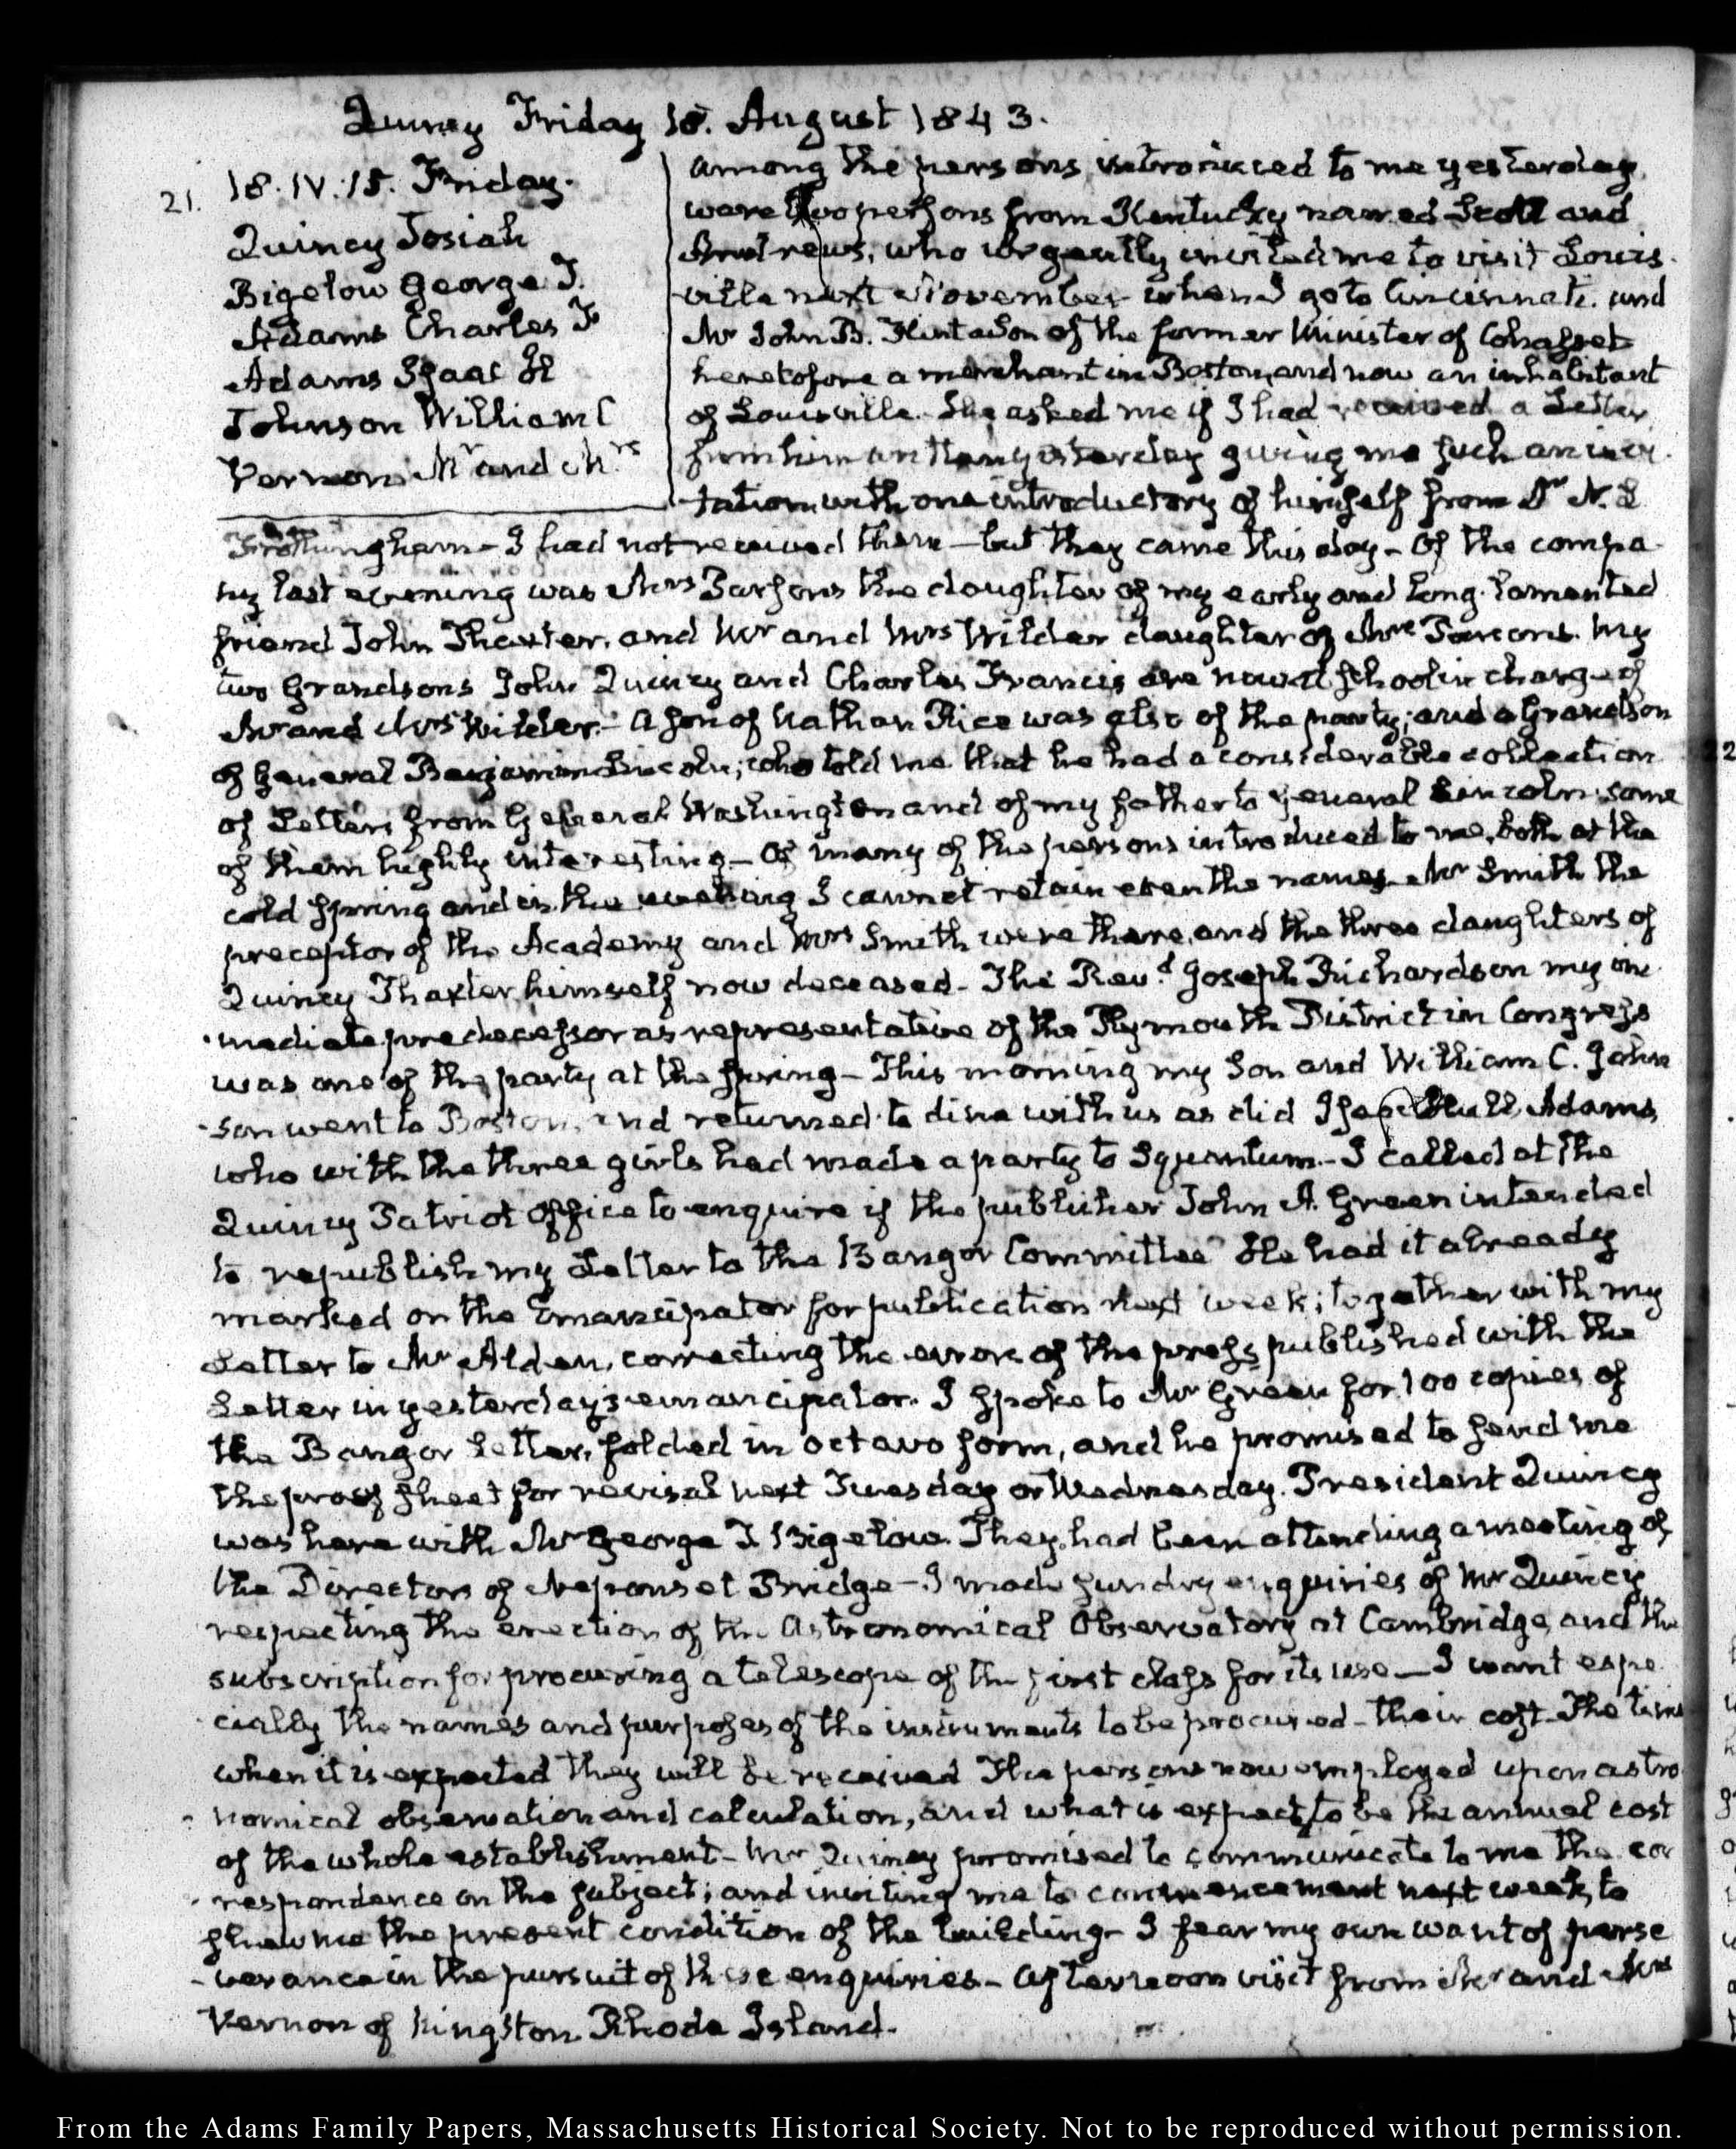 Quincy Friday 18. August 1843.
21.
18. IV:15. Friday.
Quincy Josiah
Bigelow George T.
Adams Charles F
Adams Isaac H
Johnson William C
Vernon Mr and Mrs
among the persons introduced to me yesterday
were two persons from Kentucky named Scott and
Andrews, who urgently invited me to visit Louis-
ville next November when I go to Cincinnati. and
Mr John B. Flint a Son of the former Minister of Cohasset
heretofore a merchant in Boston, and now an inhabitant
of Louisville. He asked me if I had received a Letter
from him written yesterday giving me such an invi-
tation with one introductory of himself from Dr N. L
Frothingham - I had not received them - but they came this day - Of the compa-
ny last evening was Mrs Parsons the daughter of my early and long-lamented
friend John Thaxter, and Mr and Mrs Wilder daughter of Mrs Parsons. My
two Grandsons John Quincy and Charles Francis are now at school in charge of
Mr and Mrs Wilder. - A son of Nathan Rice was also of the party; and a Grandson
of General Benjamin Lincoln; who told me that he had a considerable collection
of Letters from General Washington and of my father to General Lincoln some
of them highly interesting - Of many of the persons introduced to me, both at the
cold spring and in the evening I cannot retain even the names. Mr Smith the
preceptor of the Academy and Mrs Smith were there, and the three daughters of
Quincy Thaxter himself now deceased - The Revd. Joseph Richardson my im-
mediate predecessor as representative of the Plymouth District in Congress
was one of the party at the spring - This morning my Son and William C. John-
son went to Boston, and returned to dine with us as did Isaac Hull Adams
who with the three girls had made a party to Squantum - I called at the
Quincy Patriot Office to enquire if the publisher John A. Green intended
to republish my Letter to the Bangor Committee He had it already
marked on the Emancipator for publication next week; together with my
Letter to Mr Alden, correcting the error of the press published with the
Letter in yesterday's emancipator. I spoke to Mr Green for 100 copies of
the Bangor Letter, folded in octavo form, and he promised to send me
the proof sheet for revisal next Tuesday or Wednesday. President Quincy
was here with Mr George T Bigelow. They had been attending a meeting of
the Directors of Neponset Bridge - I made sundry enquiries of Mr Quincy
respecting the erection of the Astronomical Observatory at Cambridge, and the
subscription for procuring a telescope of the first class for its use - I want espe-
cially the names and purposes of the instruments to be procured - their cost - The time
when it is expected they will be received The persons now employed upon astro-
nomical observation and calculation, and what is expect to be the annual cost
of the whole establishment - Mr Quincy promised to communicate to me the cor-
respondence on the subject; and inviting me to commencement next week, to
shew me the present condition of the building - I fear my own want of perse-
verance in the pursuit of these enquiries - Afternoon visit from Mr and Mrs
Vernon of Kingston Rhode Island.
From the Adams Family Papers, Massachusetts Historical Society. Not to be reproduced without permission.